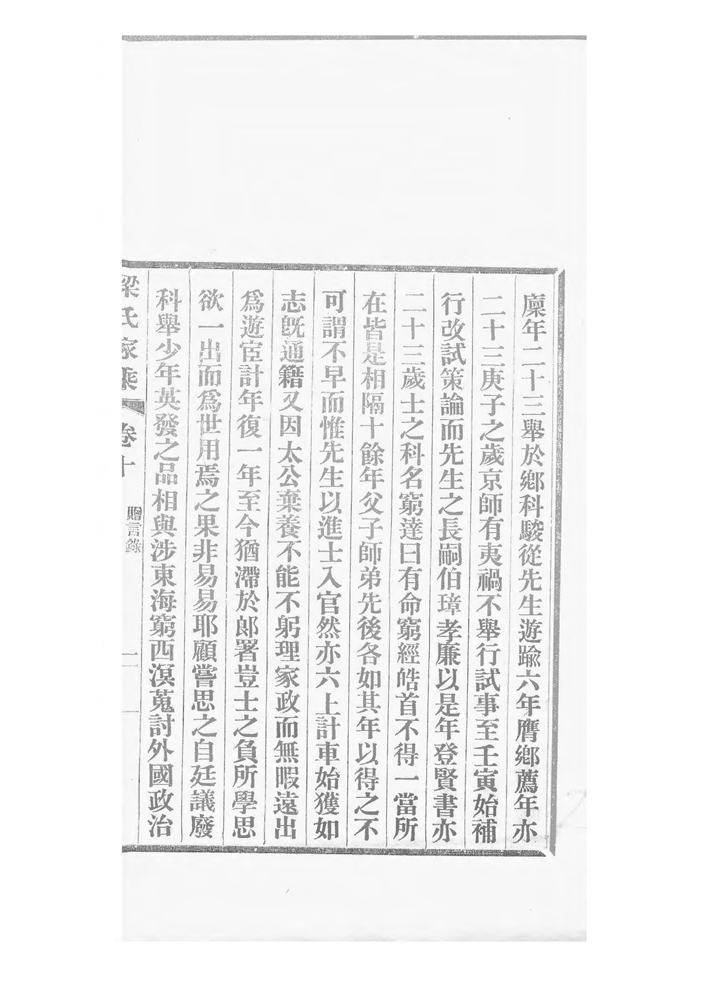 廩年二十三舉於鄉科駿從先生遊踰六年膺鄉薦年亦
二十三庚子之歲京師有夷禍不舉行試事至壬寅始補
行改試策論而先生之長嗣伯璋孝廉以是年登賢書亦
二十三歲士之科名窮達曰有命窮經皓首不得一當所
在皆是相隔十餘年父子師弟先後各如其年以得之不
可謂不早而惟先生以進士入官然亦六上計車始獲如
志旣通籍又因太公棄養不能不躬理家政而無暇遠出
爲遊宦計年復一年至今猶滯於郎署豈士之負所學思
欲一出而爲世用焉之果非易易耶顧嘗思之自廷議廢
科舉少年英發之品相與涉東海窮西溟蒐討外國政治
梁氏家乘 卷十 贈言錄 二